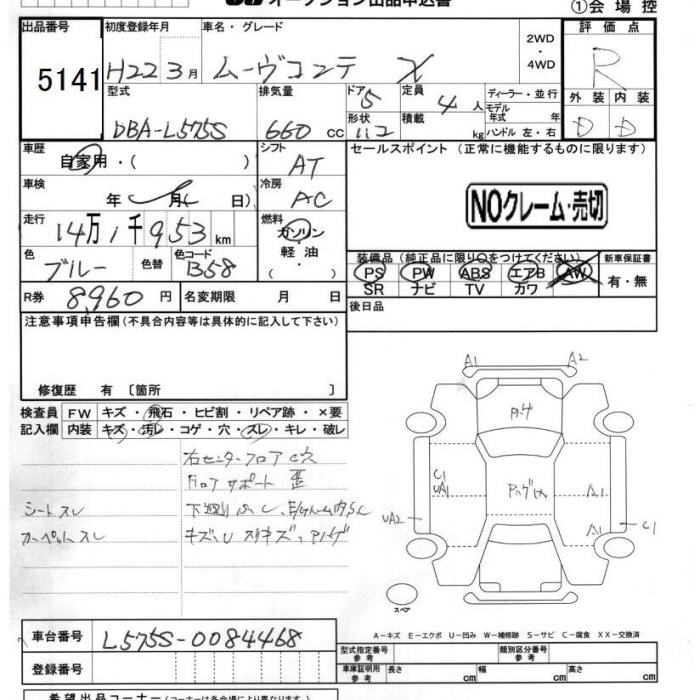 オークション出品申込書
①会場控
出品番号 初度登録年月 車名・グレード 2WD・4WD 評価点
5141 H22 3月 ムーヴコンテ X R
型式 排気量 ドア 定員 ディーラー・並行 外装 内装
DBA-L575S 660cc 5 4人 モデル年式 年 D D
形状 積載 kg ハンドル 左・右
車歴 シフト セールスポイント (正常に機能するものに限ります)
自家用・( ) AT
車検 冷房
年 月( 日) AC
NOクレーム・売切
走行 燃料
14万1千953km ガソリン・軽油・( )
色 色替 色コード
ブルー B58
装備品(純正品に限り○をつけてください) 新車保証書
PS PW ABS エアB AW 有・無
SR ナビ TV カワ
R券 8960円 名変期限 月 日
後日品
注意事項申告欄(不具合内容等は具体的に記入して下さい)
修復歴 有 〔箇所 〕
検査員 FW キズ・飛石・ヒビ割・リペア跡・×要
記入欄 内装 キズ・汚レ・コゲ・穴・スレ・キレ・破レ
右センターフロアC穴
フロアサポート 歪
シートスレ
カーペットスレ
A1 A2
C1
UA1
UA2
A1
A1
C1
スペア
A-キズ E-エクボ U-凹み W-補修跡 S-サビ C-腐食 XX-交換済
車台番号 L575S-0084468
型式指定番号 参考 類別区分番号 参考
登録番号
車庫証明用 参考 長さ cm 幅 cm 高さ cm
希望出品コーナー(コーナーは各会場により異なります)